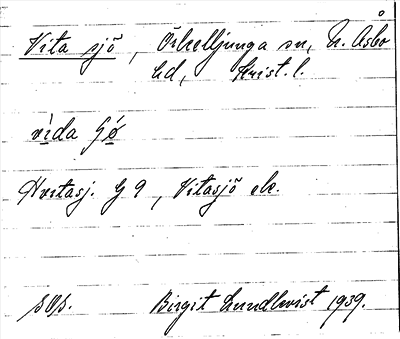 Vita sjö, Örkelljunga sn, N. Åsbo
hd, Krist. l.
vìda ʃǿ
Hvitasj. G 9, Vitasjö ek.
sOp. Birgit Lundkvist 1939.